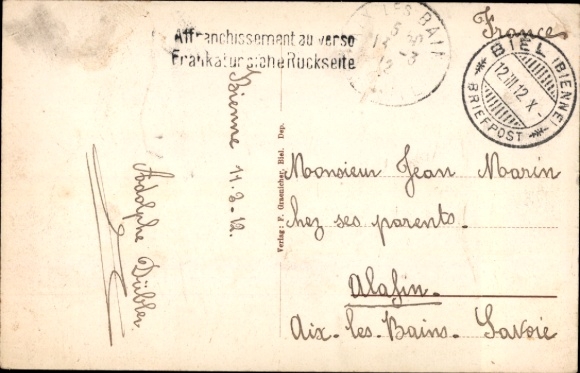 Affranchissement au verso
Frankatur siehe Rückseite
AIX LES BAINS
France
BIEL (BIENNE)
12.III.12.X.
BRIEFPOST
Bienne 11-3-12.
Adolphe Dübler
Verlag: F. Graenicher, Biel. Dep.
Monsieur Jean Marin
chez ses parents.
Alafin.
Aix-les-Bains. Savoie